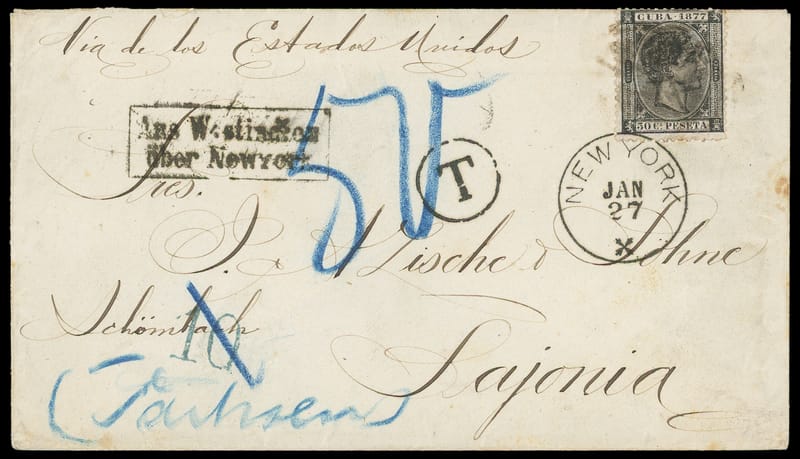 Via de los Estados Unidos
CUBA · 1877
50 Cs PESETA
Aus Westindien
über Newyork
T
NEW YORK
JAN
27
Sres.
Söhne
Schömbach
10
Sajonia
(Sachsen)